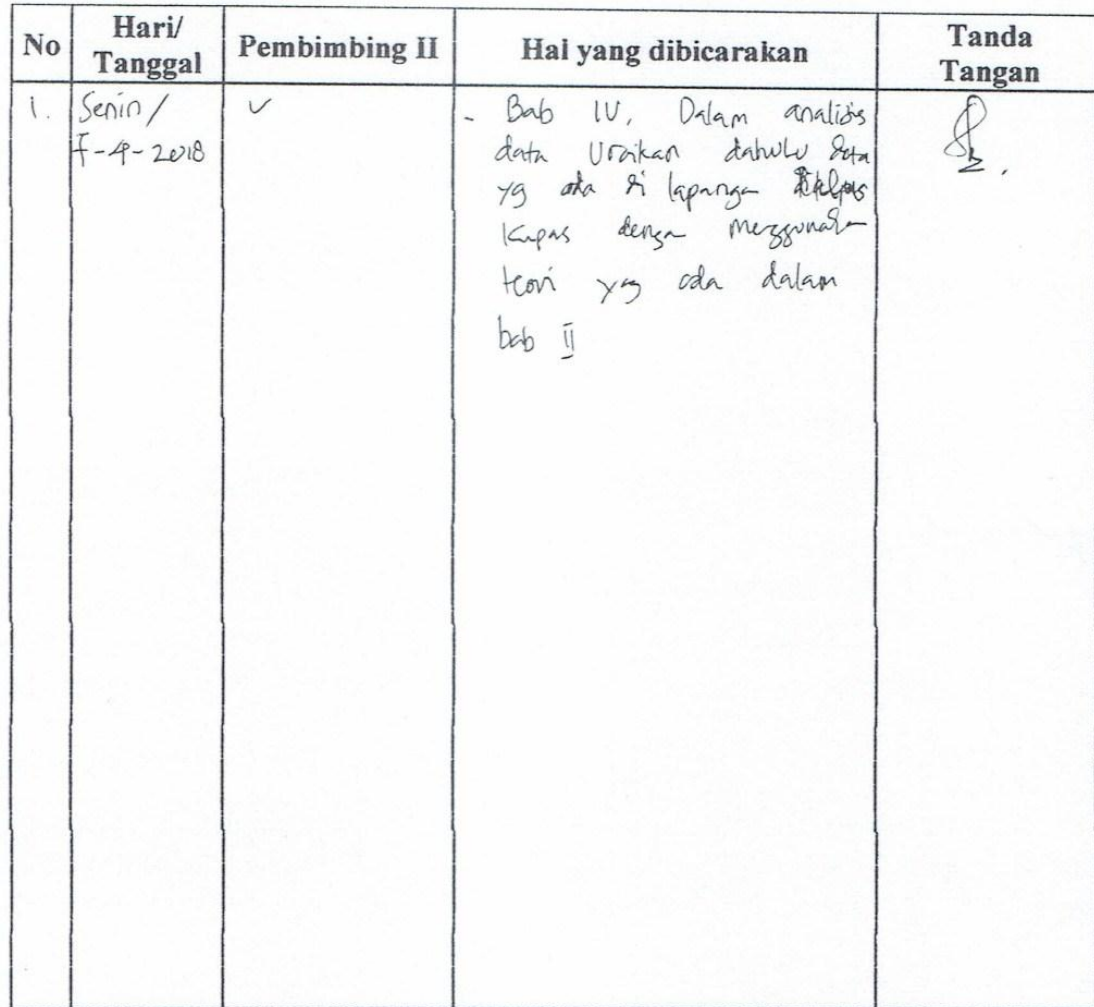 No Hari/ Tanggal Pembimbing II Hal yang dibicarakan Tanda Tangan
1. Senin/ ✓ - Bab IV, Dalam analisis
-4-2018 data Uraikan dahulu data
yg ada di lapangan
Kupas dengan menggunakan
teori yg ada dalam
bab II